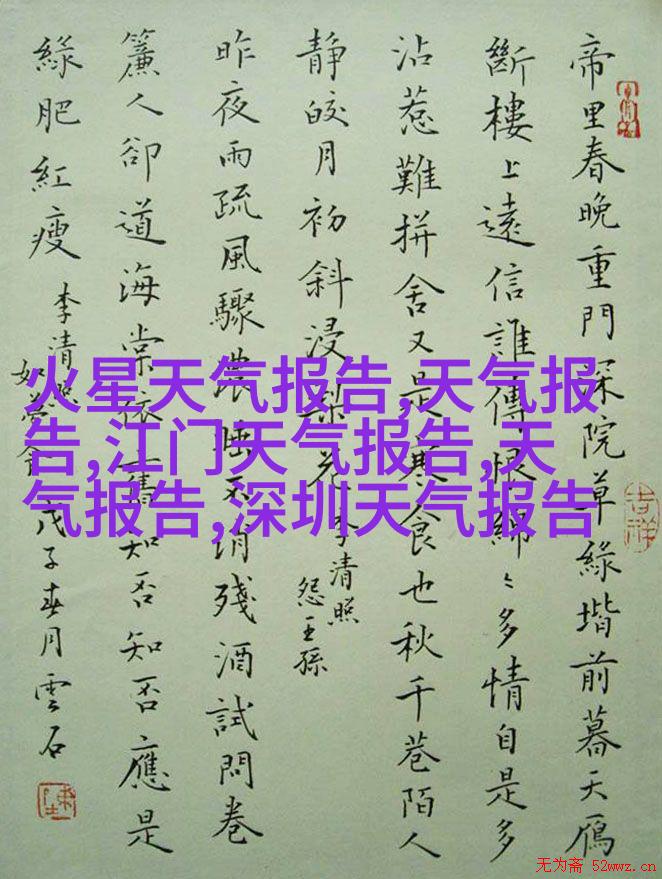 帝里春晚重門深院草緑堦前暮天鴈
斷樓上遠信誰傳恨綿〻多情自是多
沾惹難拼舍又是寒食也秋千巷陌人
静皎月初斜浸梨花
李清照
怨王孫
昨夜雨疏風驟濃睡不消殘酒試問卷
簾人卻道海棠依舊知否知否應是
緑肥紅瘦
李清照
如夢令
戊子春月雲石
吉祥
火星天气报告,天气报
告,江门天气报告,天
气报告,深圳天气报告
无为斋 52wwz.cn